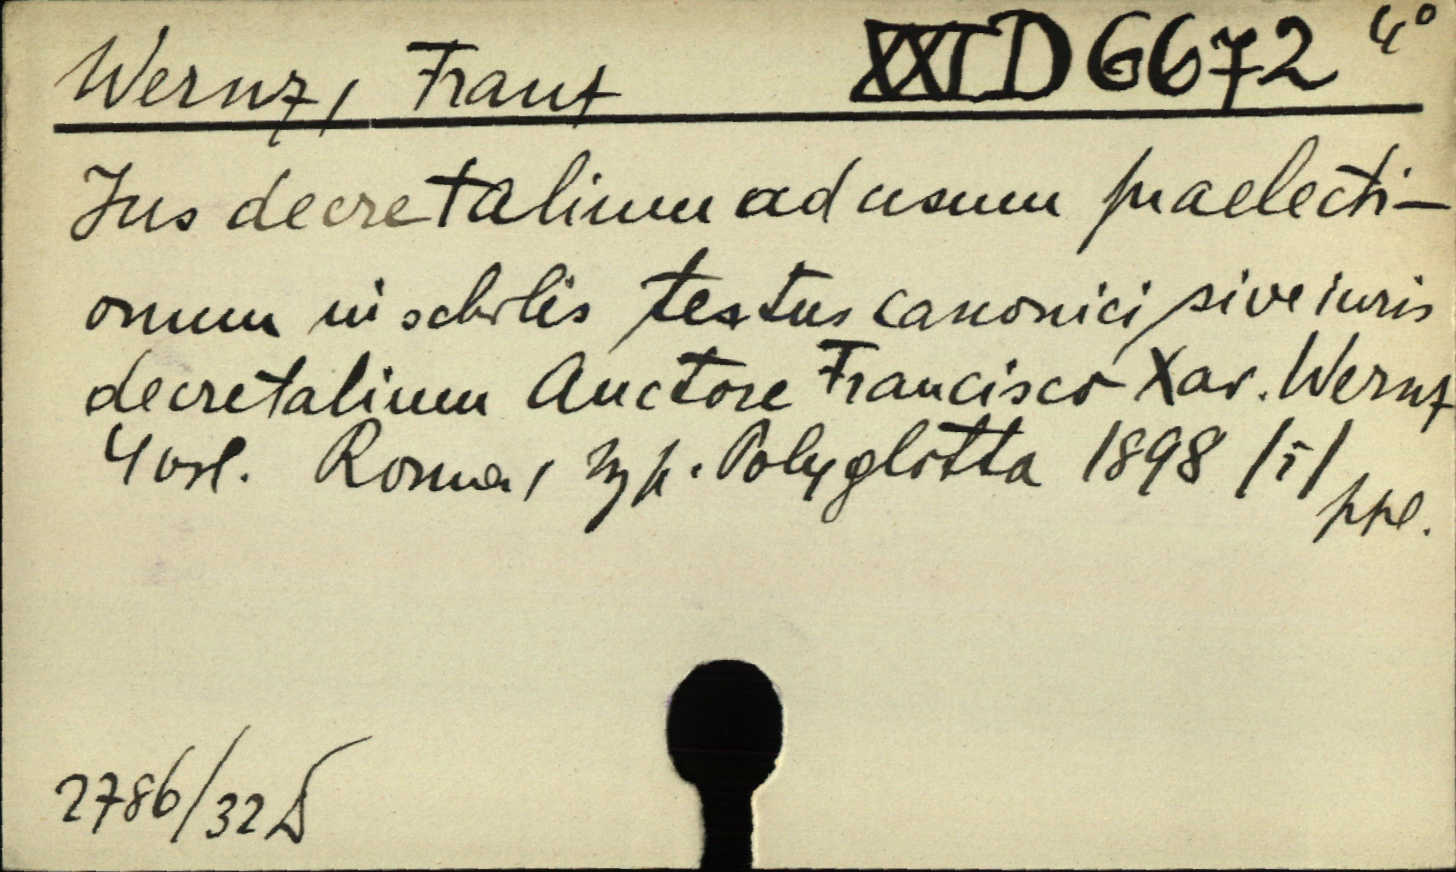 Wernz, Franz XXI D 6672 4°
Jus decretalium ad usum praelecti-
onum in scholis textus canonici sive iuris
decretalium Auctore Francisco Xav. Wernz
4 vol. Roma, Typ. Polyglotta 1898 /i/
ppl.
2786/32 D